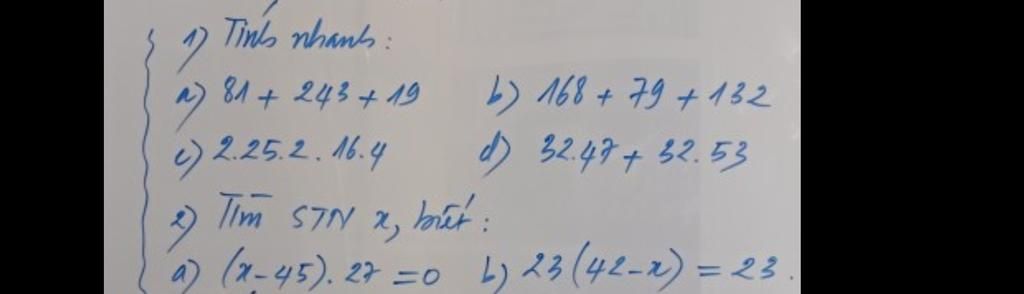 1) Tính nhanh:
a) 81 + 243 + 19 b) 168 + 79 + 132
c) 2.25.2.16.4 d) 32.47 + 32.53
2) Tìm STN x, biết:
a) (x-45).27 = 0 b) 23(42-x) = 23.